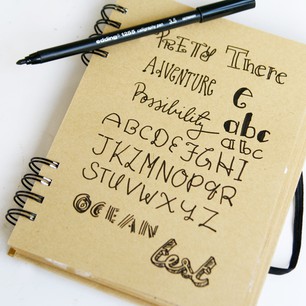 edding 1255 calligraphy pen 3.5
PRETTY There
ADVENTURE e
Possibility abc
ABCDEFGHI abc
JKLMNOPQR
STUVWXYZ
OCEAN
text